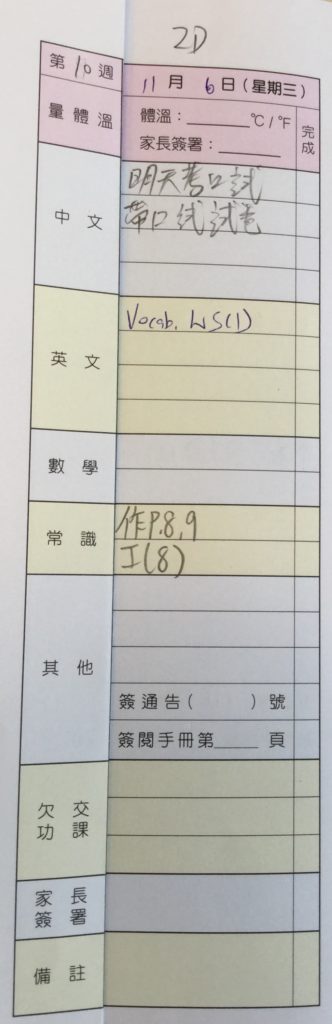 2D
第10週
11月6日(星期三)
量體溫
體溫：______℃/℉
家長簽署：______
完成
中文
明天考口試
帶口試試卷
英文
Vocab. WS(1)
數學
常識
作P.8,9
工(8)
其他
簽通告( )號
簽閱手冊第____頁
欠交功課
家長簽署
備註